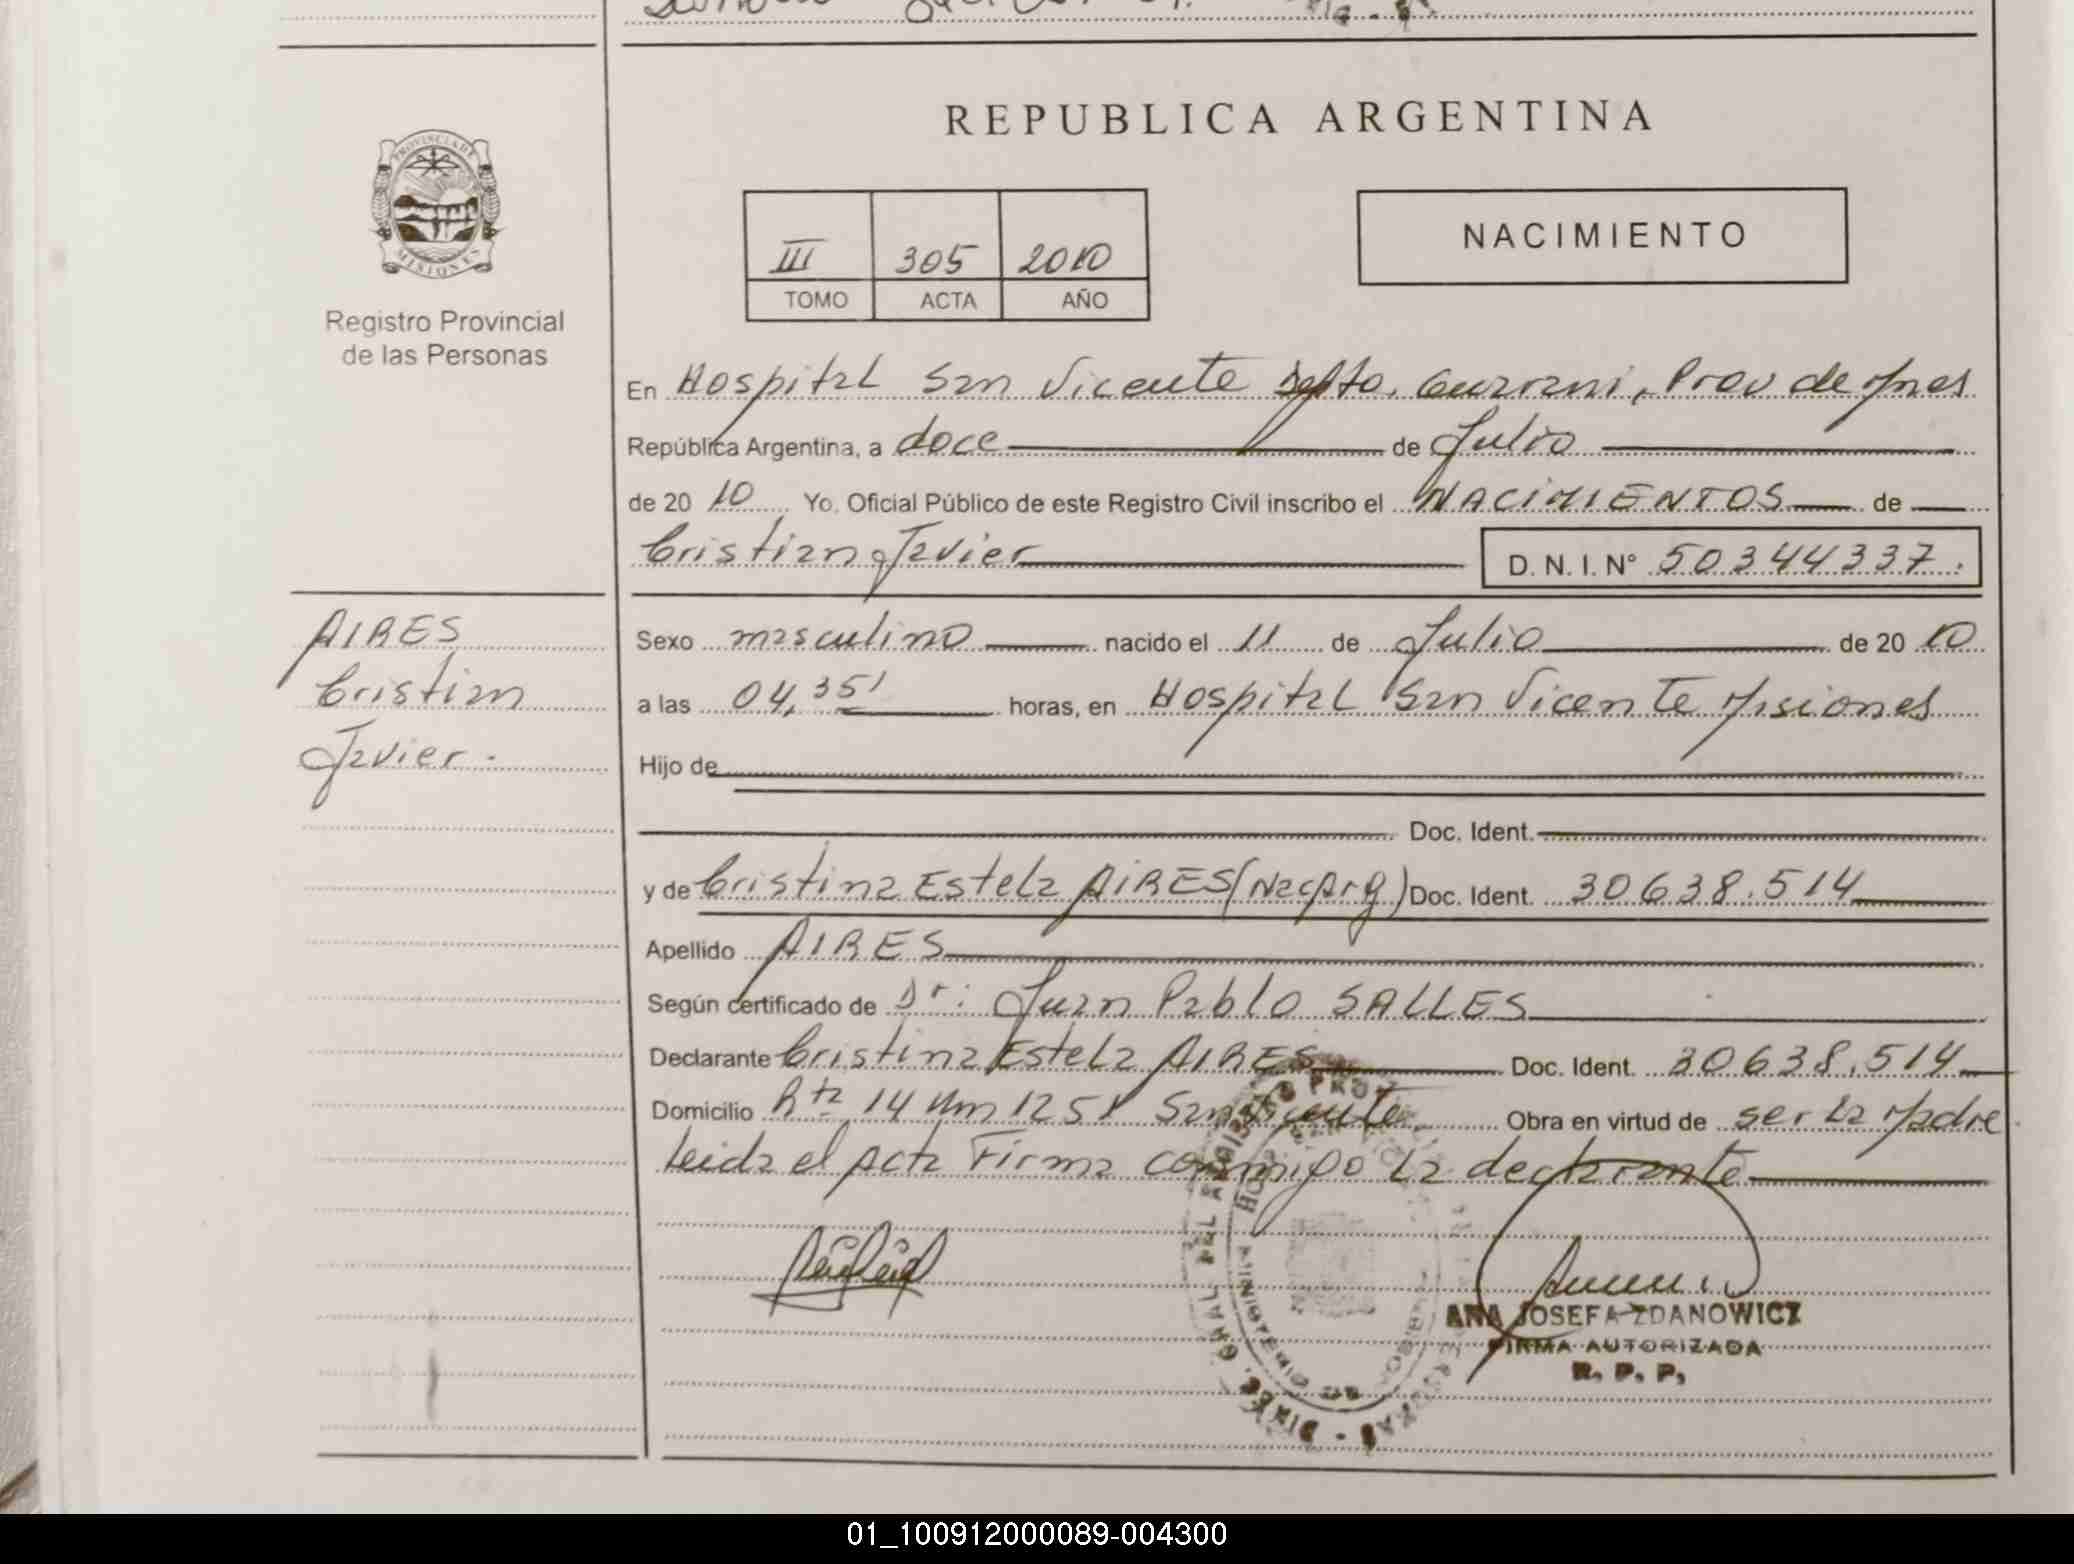 REPUBLICA ARGENTINA
PROVINCIA DE
MISIONES
Registro Provincial
de las Personas
III 305 2010
TOMO ACTA AÑO
NACIMIENTO
En Hospital San Vicente Depto. Guarani, Prov de Mnes
República Argentina, a doce de Julio
de 20 10 Yo, Oficial Público de este Registro Civil inscribo el NACIMIENTOS de
Cristian Javier D. N. I. N° 50344337.
AIRES
Cristian
Javier.
Sexo masculino nacido el 11 de Julio de 20 10
a las 04,35' horas, en Hospital San Vicente Misiones
Hijo de
Doc. Ident.
y de Cristina Estela AIRES (Nac Arg) Doc. Ident. 30638.514
Apellido AIRES
Según certificado de Dr: Juan Pablo SALLES
Declarante Cristina Estela AIRES Doc. Ident. 30638.514
Domicilio Rta 14 Km 1251 San Vicente. Obra en virtud de ser la Madre
leida el Acta Firma conmigo la declarante
ANA JOSEFA ZDANOWICZ
FIRMA AUTORIZADA
R. P. P.
01_100912000089-004300